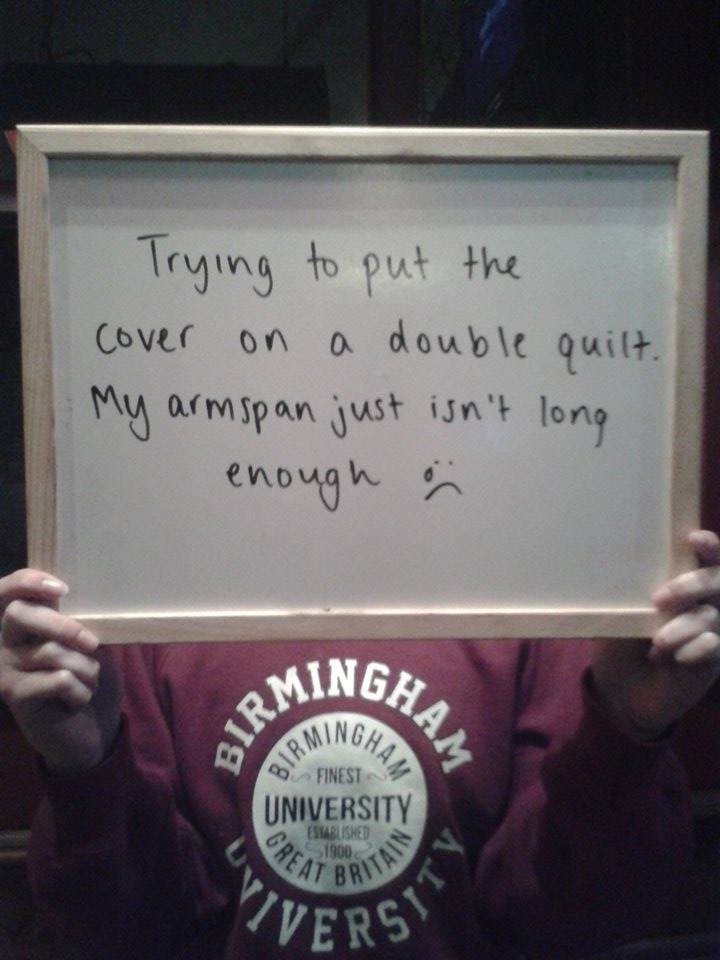 Trying to put the
cover on a double quilt.
My armspan just isn't long
enough :(
BIRMINGHAM
BIRMINGHAM
FINEST
UNIVERSITY
ESTABLISHED
1900
GREAT BRITAIN
UNIVERSITY